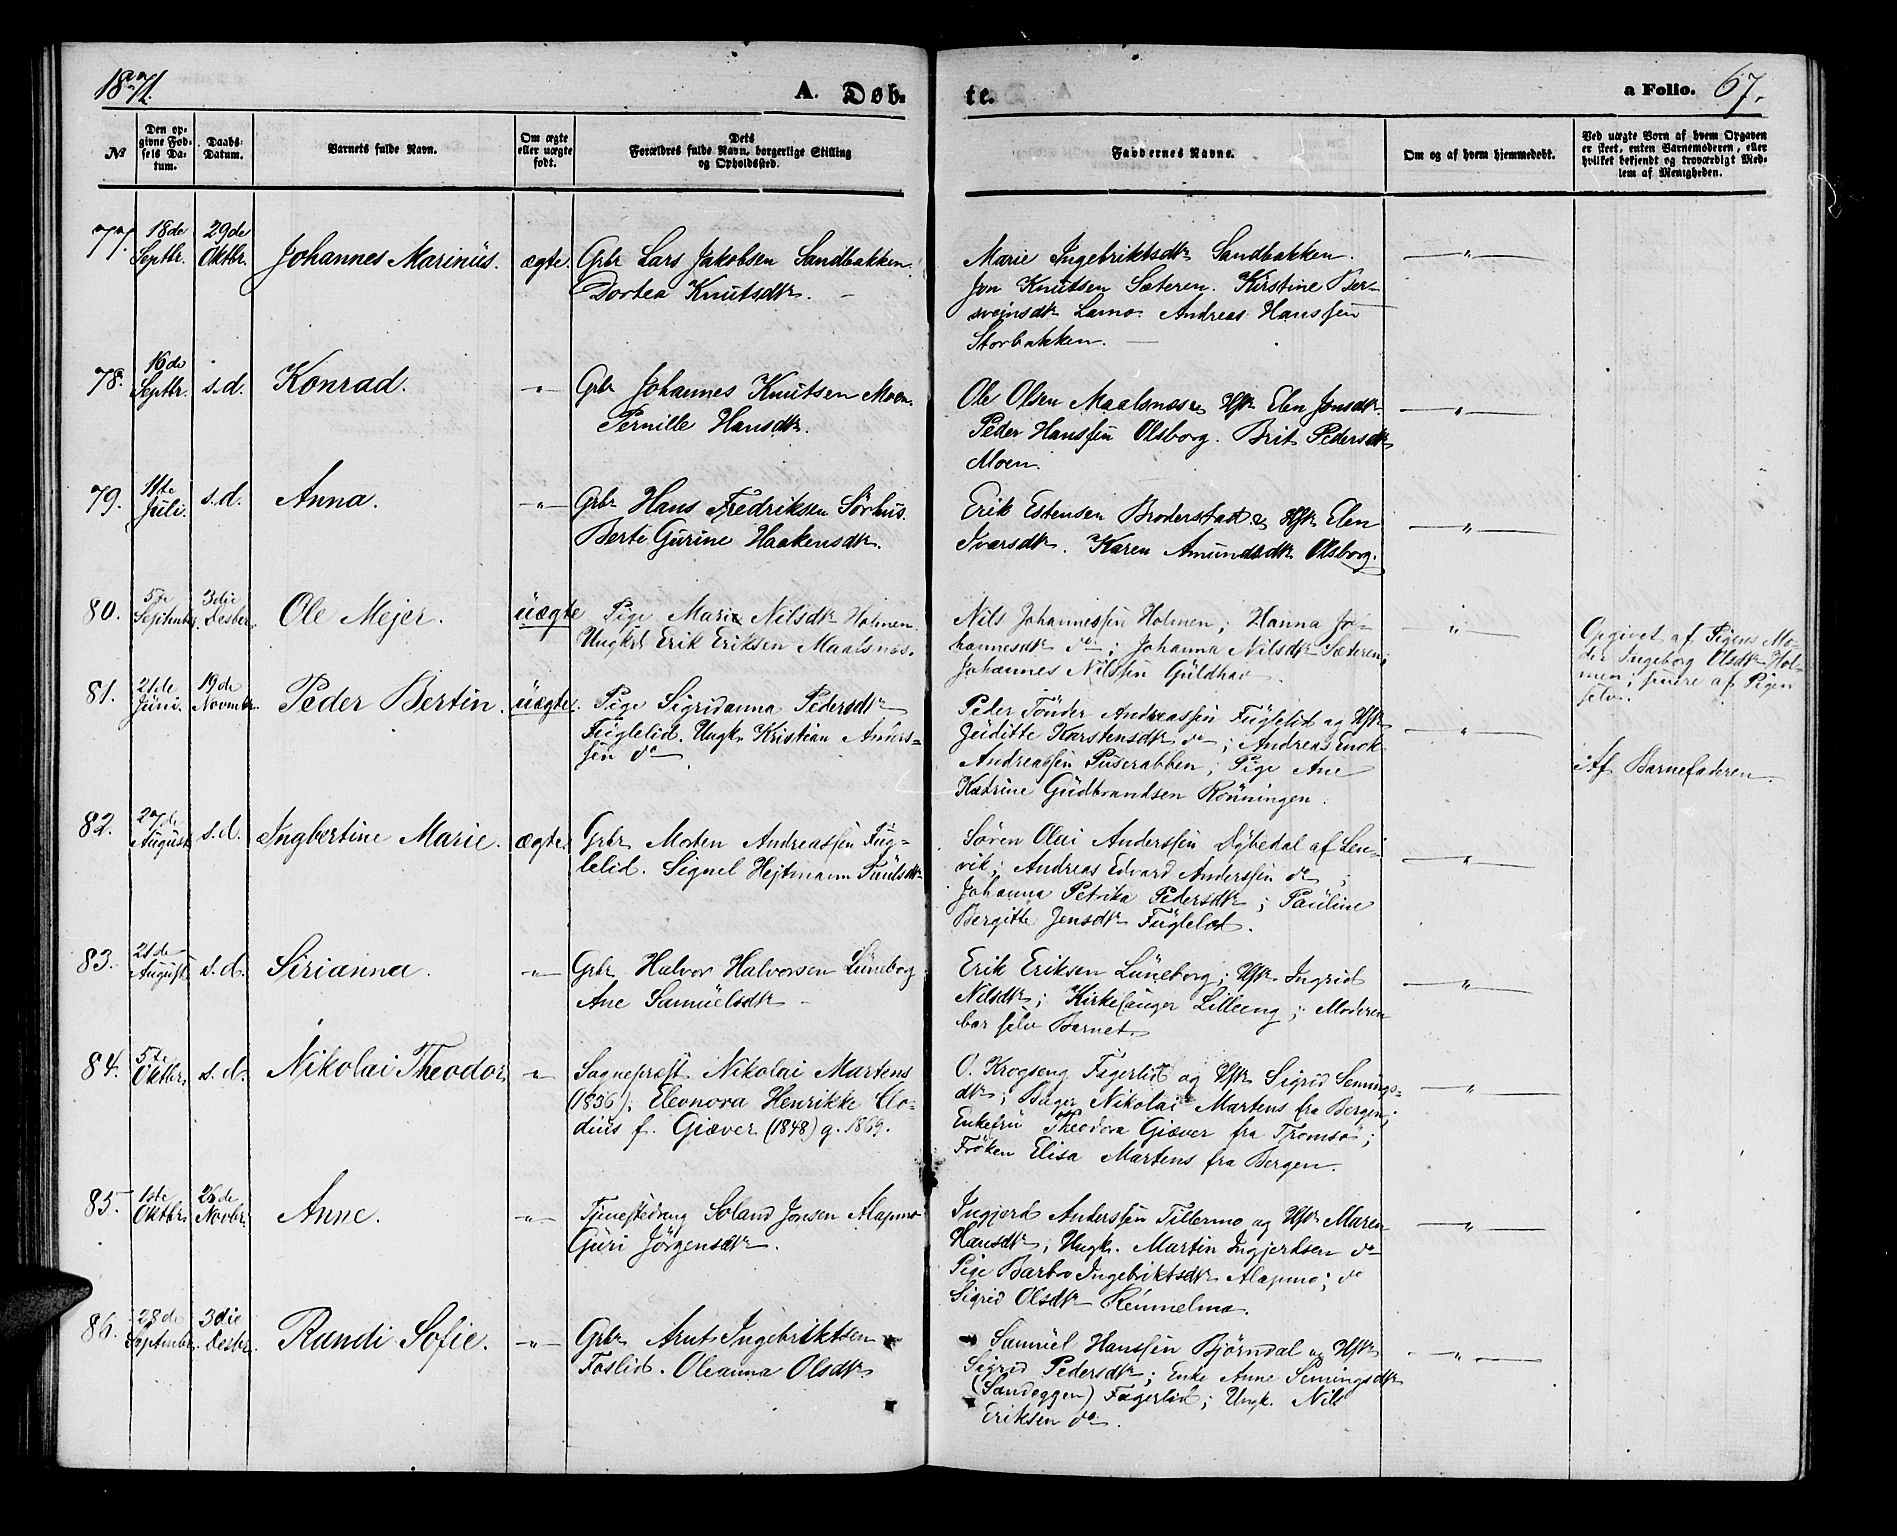 1871.
A. Døb-
te.
a Folio. 67.
№
Den op-
givne Fød-
sels Da-
tum.
Daabs-
Datum.
Barnets fulde Navn.
Om ægte
eller uægte
født.
Dets
Forældres fulde Navn, borgerlige Stilling
og Opholdssted.
Faddernes Navne.
Om og af hvem hjemmedøbt.
Ved uægte Børn af hvem Opgaven
er skeet, enten Barnemoderen, eller
hvilket bekjendt og troværdigt Med-
lem af Menigheden.
77. 18de Septbr. 29de Oktbr. Johannes Marinus. ægte. Grbr Lars Jakobsen Sandbakken.
Dortea Knutsdtr.
Marie Ingebriktsdtr Sandbakken.
Jon Knutsen Sæteren. Kirstine Ber-
sveinsdtr Lamo. Andreas Hanssen
Storbakken.
78. 16de Septbr. s.d. Konrad. " Grbr Johannes Knutsen Moen.
Pernille Hansdtr.
Ole Olsen Maalsnes og Hstr Elen Jonsdtr.
Peder Hanssen Olsborg. Brit Pedersdtr
Moen.
79. 11te Juli. s.d. Anna. " Grbr Hans Fredriksen Sörhus.
Berte Gurine Haakensdtr.
Erik Estensen Broderstad og Hstr Elen
Ivarsdtr. Karen Amundsdtr Olsborg.
80. 5te September. 3die Desbr. Ole Mejer. uægte Pige Marie Nilsdtr Holmen.
Ungkrl Erik Eriksen Maalsnes.
Nils Johannessen Holmen; Hanna Jo-
hannesdtr do; Johanna Nilsdtr Sæteren;
Johannes Nilssen Guldhav.
Opgivet af Pigens Mo-
der Ingeborg Olsdtr Hol-
men; senere af Pigen
selv.
81. 21de Juni. 19de Novmbr. Peder Bertin. uægte. Pige Sigridanna Pedersdtr
Fuglelid. Ungk. Kristian Anders-
sen do
Peder Tönder Andreassen Fuglelid og Hstr
Juditte Karstensdtr do; Andreas Enok
Andreassen Puserabben; Pige Ane
Katrine Gudbrandsen Rönningen.
Af Barnefaderen.
82. 27de August s.d. Ingbertine Marie. ægte. Grbr Morten Andreassen Fug-
lelid. Signel Hejtmann Paulsdtr
Sören Olai Anderssen Dybedal af Len-
vik; Andreas Edvard Anderssen do;
Johanna Petrika Pedersdtr; Pauline
Bergitte Jensdtr Fuglelid.
83. 21de August s.d. Sirianna. " Grbr Halvor Halvorsen Luneborg.
Ane Samuelsdtr
Erik Eriksen Luneborg; Hstr Ingrid
Nilsdtr; Kirkesanger Lilleeng; Moderen
bar selv Barnet.
84. 5te Oktbr. s.d. Nikolai Theodor " Sognepræst Nikolai Martens
(1836); Eleonora Henrikke Clo-
dius f. Giæver (1848) g. 1869.
O. Krogseng Fagerlid og Hstr Sigrid Semings-
dtr; Bager Nikolai Martens fra Bergen;
Enkefru Theodora Giæver fra Tromsö;
Fröken Elisa Martens fra Bergen.
85. 1ste Oktbr. 26de Novbr. Anne. " Tjenestedreng Erland Jonsen Alapmo
Guri Jörgensdtr.
Ingjerd Anderssen Tillermo og Hstr Maren
Hansdtr; Ungk. Martin Ingjerdsen do
Pige Barbro Ingebriktsdtr Alapmo; do
Sigrid Olsdtr Remmelmo.
86. 28de September. 3die Desbr. Randi Sofie. " Grbr Arnt Ingebriktsen
Foslid. Oleanna Olsdtr
Samuel Hanssen Björndal og Hstr
Sigrid Pedersdtr; Enke Anne Semingsdtr
(Sandeggen) Fagerlid; Ungk. Nils
Eriksen do.